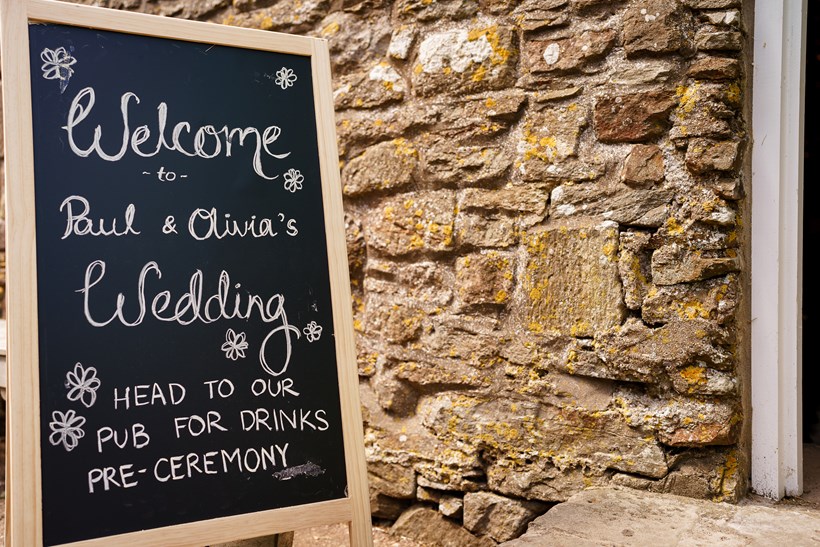 Welcome
-to-
Paul & Olivia's
Wedding
HEAD TO OUR
PUB FOR DRINKS
PRE-CEREMONY